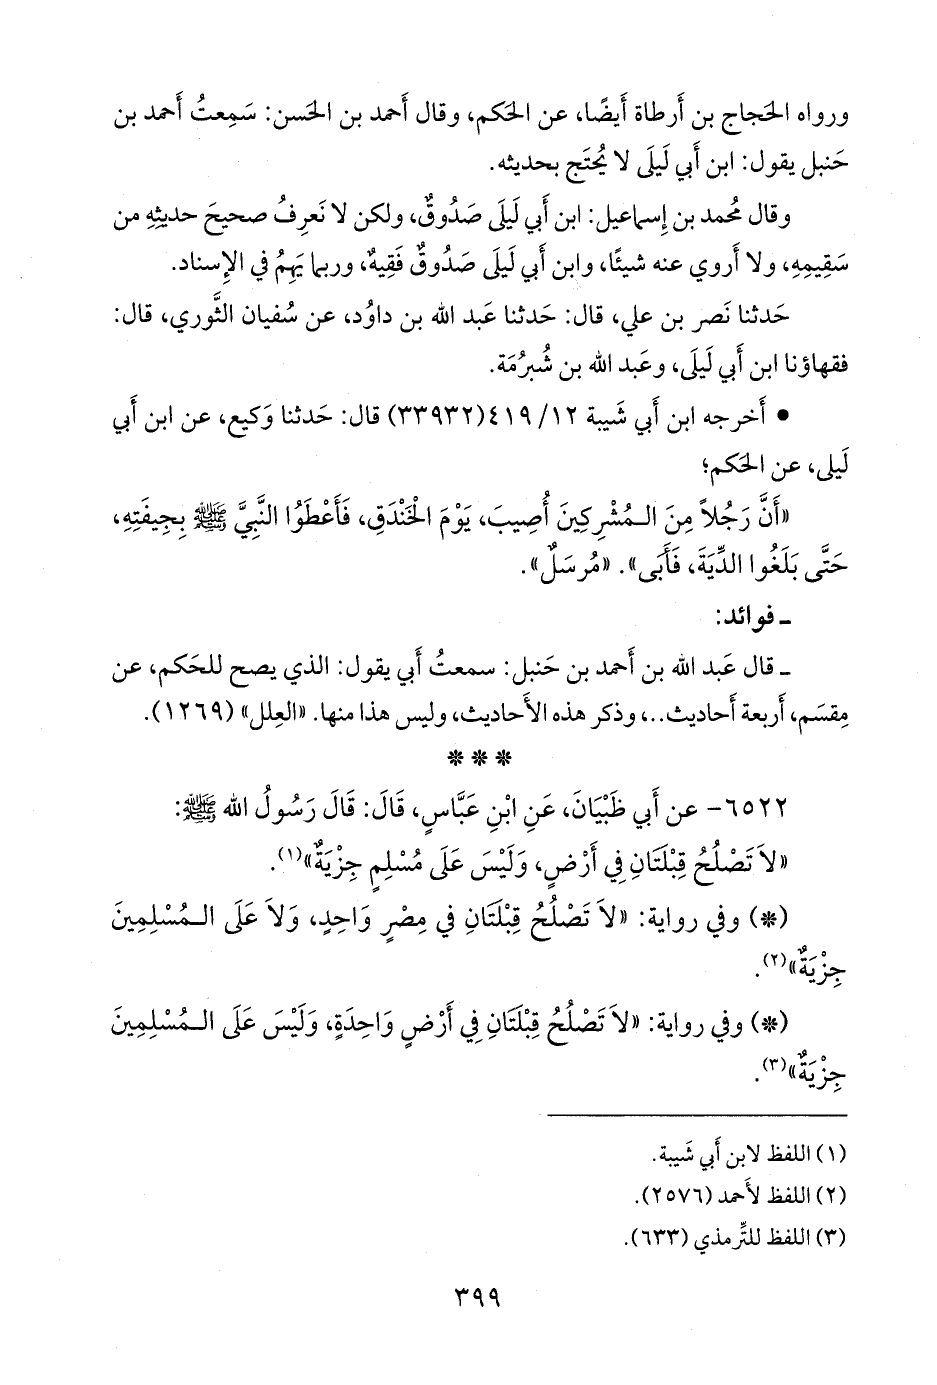 ورواه الحَجاج بن أَرطاة أَيضًا، عن الحَكم، وقال أَحمد بن الحَسن: سَمِعتُ أَحمد بن
حَنبل يقول: ابن أَبي لَيلَى لا يُحتَج بحديثه.
وقال مُحمد بن إِسماعيل: ابن أَبي لَيلَى صَدُوقٌ، ولكن لا نَعرِفُ صحيحَ حديثِهِ من
سَقِيمِهِ، ولا أَروي عنه شيئًا، وابن أَبي لَيلَى صَدُوقٌ فَقِيهٌ، وربما يَهِمُ في الإِسناد.
حَدثنا نَصر بن علي، قال: حَدثنا عَبد الله بن داوُد، عن سُفيان الثَّوري، قال:
فقهاؤنا ابن أَبي لَيلَى، وعَبد الله بن شُبرُمَة.
• أَخرجه ابن أَبي شَيبة ١٢/ ٤١٩(٣٣٩٣٢) قال: حَدثنا وَكيع، عن ابن أَبي
لَيلى، عن الحَكم؛
«أَنَّ رَجُلاً مِنَ الـمُشْرِكِينَ أُصِيبَ، يَوْمَ الْخَنْدَقِ، فَأَعْطَوُا النَّبِيَّ ﷺ بِجِيفَتِهِ،
حَتَّى بَلَغُوا الدِّيَةَ، فَأَبَى». «مُرسَلٌ».
ـ فوائد:
ـ قال عَبد الله بن أَحمد بن حَنبل: سمعتُ أَبي يقول: الذي يصح للحَكم، عن
مِقسَم، أَربعة أَحاديث..، وذكر هذه الأَحاديث، وليس هذا منها. «العِلل» (١٢٦٩).
* * *
٦٥٢٢- عن أَبي ظَبْيَانَ، عَنِ ابْنِ عَبَّاسٍ، قَالَ: قَالَ رَسُولُ الله ﷺ:
«لاَ تَصْلُحُ قِبْلَتَانِ فِي أَرْضٍ، وَلَيْسَ عَلَى مُسْلِمٍ جِزْيَةٌ»(١).
(*) وفي رواية: «لاَ تَصْلُحُ قِبْلَتَانِ فِي مِصْرٍ وَاحِدٍ، وَلاَ عَلَى الـمُسْلِمِينَ
جِزْيَةٌ»(٢).
(*) وفي رواية: «لاَ تَصْلُحُ قِبْلَتَانِ فِي أَرْضٍ وَاحِدَةٍ، وَلَيْسَ عَلَى الـمُسْلِمِينَ
جِزْيَةٌ»(٣).
(١) اللفظ لابن أَبي شَيبة.
(٢) اللفظ لأَحمد (٢٥٧٦).
(٣) اللفظ للتِّرمذي (٦٣٣).
٣٩٩